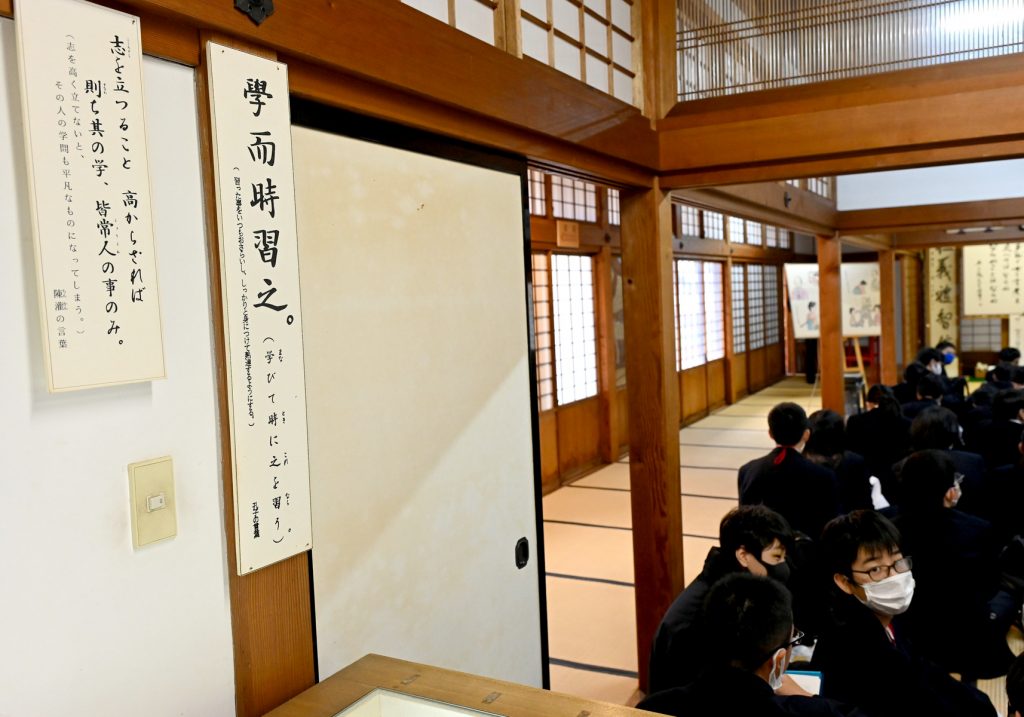 志を立つること 高からざれば
則ち其の学、皆常人の事のみ。
(志を高く立てないと、
その人の学問も平凡なものになってしまう。)
陳瓘の言葉
學而時習之。(学びて時に之を習う)
(習った事をいつもおさらいし、しっかりと身につけて熟達するようにする。)
孔子の言葉
義禮智